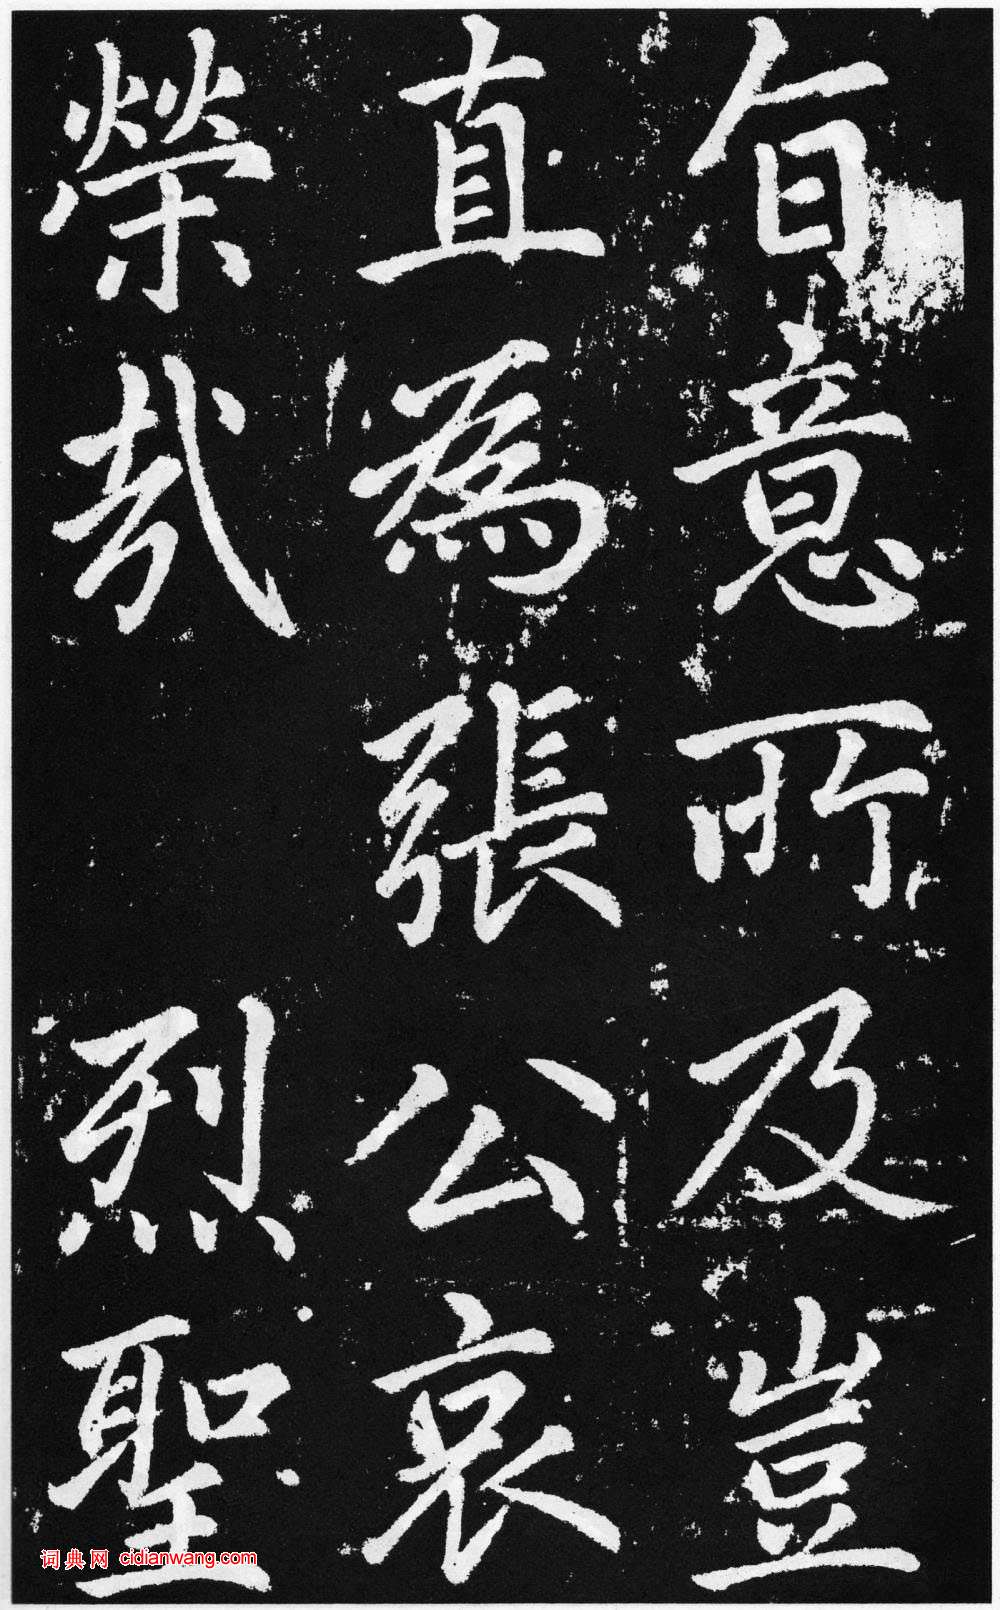 旨意所及豈
直為張公哀
榮哉 烈聖
词典网 cidianwang.com